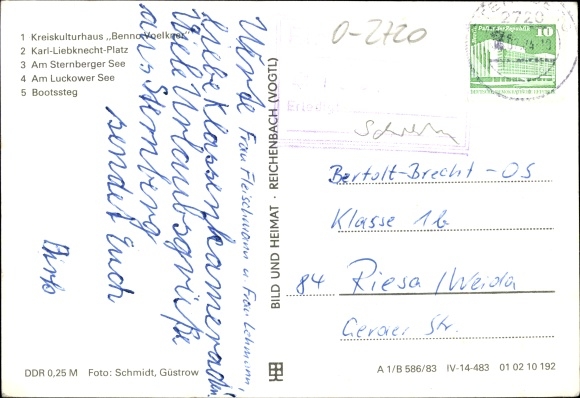 1 Kreiskulturhaus „Benno Voelkner"
2 Karl-Liebknecht-Platz
3 Am Sternberger See
4 Am Luckower See
5 Bootssteg
Werte Frau Fleischmann u Frau Lehmann,
liebe Klassenkameraden
Viele Urlaubsgrüße
aus Sternberg
sendet Euch
BILD UND HEIMAT · REICHENBACH (VOGTL)
0-2720
2720
10
Bertolt-Brecht-OS
Klasse 1b
84 Riesa/Weida
Geraer Str.
DDR 0,25 M Foto: Schmidt, Güstrow
A 1/B 586/83 IV-14-483 01 02 10 192